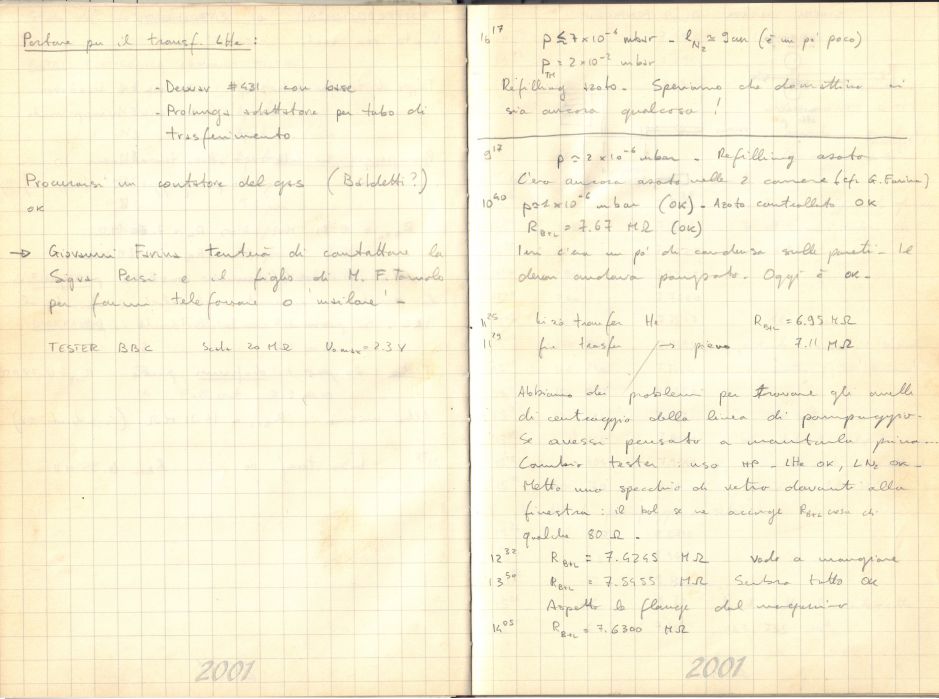 Portare per il transf. LHe :
- Dewar #431 con base
- Prolunga adattatore per tubo di
trasferimento
Procurarsi un contatore del gas (Baldetti?)
OK
→ Giovanni Farina tenterà di contattare la
Sigra Persi e il figlio di M. F.
per farmi telefonare o
TESTER BBC Scala 20 MΩ Vomax = 2.3 V
2001
16 17 p ≲ 7 x 10⁻⁶ mbar - l N₂ ≃ 9 cm (è un po' poco)
p TH = 2 x 10⁻² mbar
Refilling azoto. Speriamo che domattina ci
sia ancora qualcosa !
9 17 p ≃ 2 x 10⁻⁶ mbar - Refilling azoto
C'era ancora azoto nelle 2 camere (cfr G. Farina)
10 40 p ≃ 1 x 10⁻⁶ mbar (OK) - Azoto controllato OK
R B+L = 7.67 MΩ (OK)
Ieri c'era un po' di condensa sulle pareti - Il
dewar andava pompato. Oggi è OK -
11 25 Inizio transfer He R B+L = 6.95 MΩ
11 29 fine transfer → pieno 7.11 MΩ
Abbiamo dei problemi per trovare gli anelli
di centraggio della linea di pompaggio.
Se avessi pensato a montarla prima...
Cambio tester : uso HP - LHe OK, LN₂ OK -
Metto uno specchio di vetro davanti alla
finestra : il bol se ne accorge R B+L cresce di
qualche 80 Ω -
12 32 R B+L = 7.4245 MΩ vado a mangiare
13 50 R B+L = 7.5455 MΩ Sembra tutto OK
Aspetto le flange dal magazzino
14 05 R B+L = 7.6300 MΩ
2001